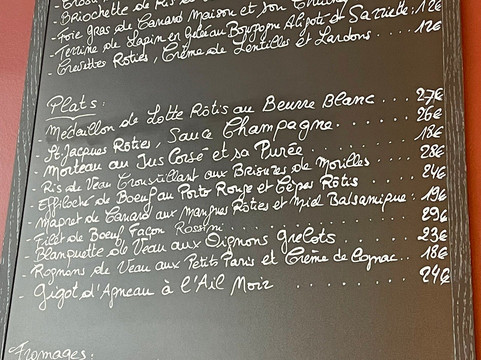 - Briochette de Ris de
- Foie gras de Canard Maison et son Chutney
- Terrine de Lapin en Gelée au Bourgogne Aligoté et Sarriette: 12€
- Crevettes Roties, Crème de Lentilles et Lardons.... 12€
Plats:
- Médaillon de Lotte Rôtis au Beurre Blanc.... 27€
- St Jacques Roties, Sauce Champagne. .... 26€
- Morteau au Jus Corsé et sa Purée .... 18€
- Ris de Veau Croustillant aux Brisures de Morilles .... 28€
- Effiloché de Boeuf au Porto Rouge et Cèpes Rôtis 24€
- Magret de Canard aux Mangues Rôties et Miel Balsamique: 19€
- Filet de Boeuf Façon Rossini .... 29€
- Blanquette de Veau aux Oignons Grelots .... 23€
- Rognons de Veau aux Petits Paris et Crème de Cognac.. 18€
- Gigot d'Agneau à l'Ail Noir .... 24€
Fromages: